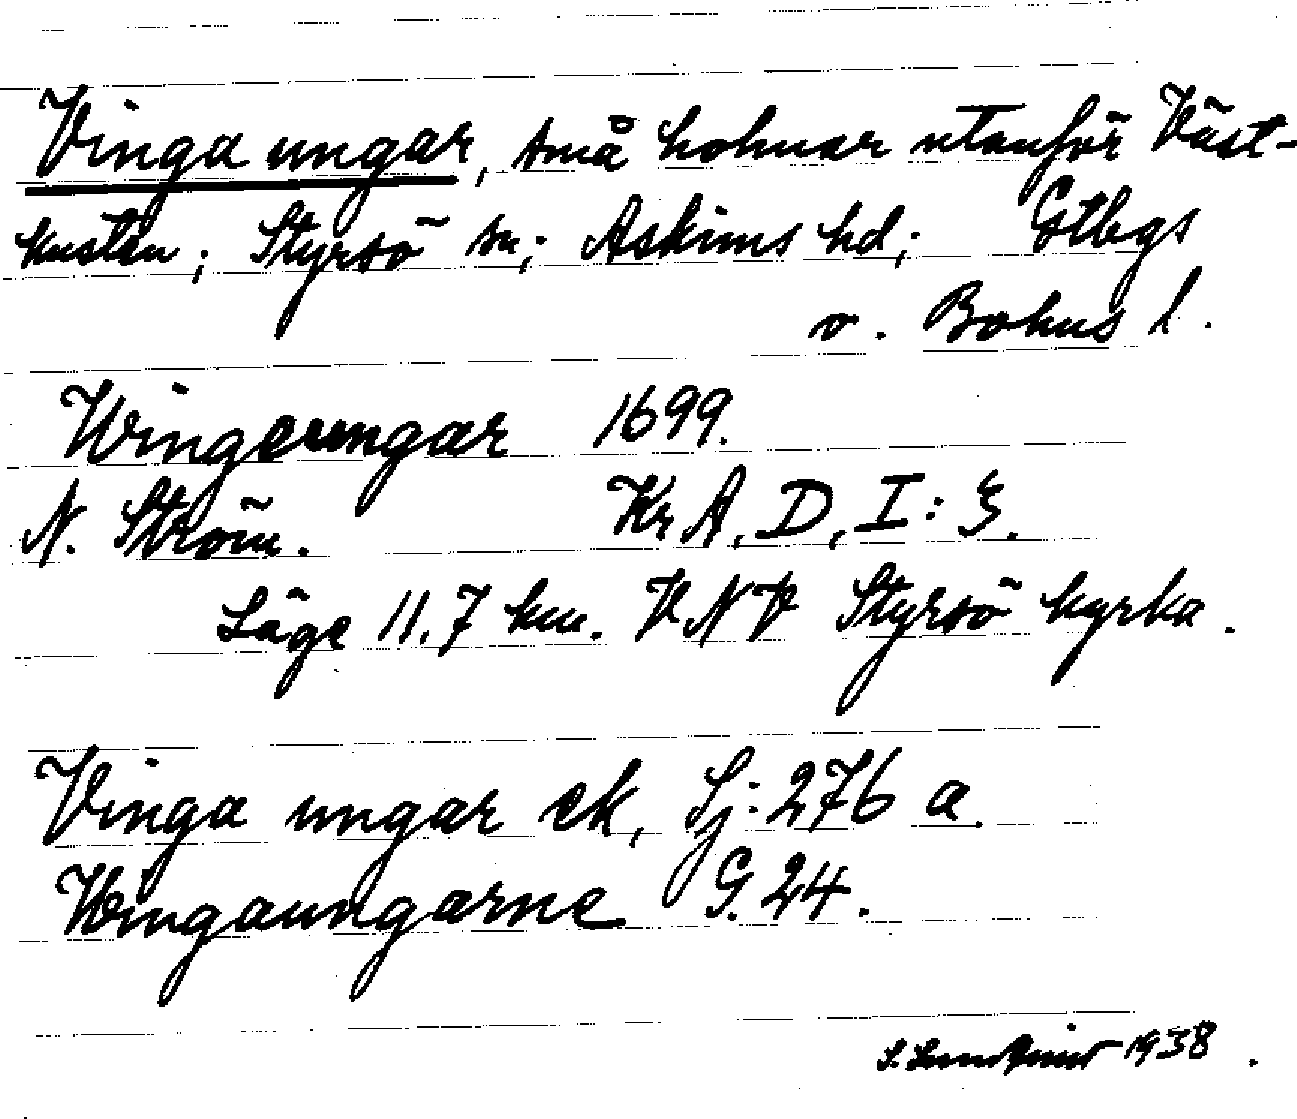 Vinga ungar, små holmar utanför Väst-
kusten; Styrsö sn; Askims hd; Gtbgs
o. Bohus l.
Wingeungar 1699.
N. Ström. Kr A, D, I: 3.
Läge 11.7 km. VNV Styrsö kyrka.
Vinga ungar ek, Sj: 276 a.
Wingaungarne G. 24.
S. 1938.